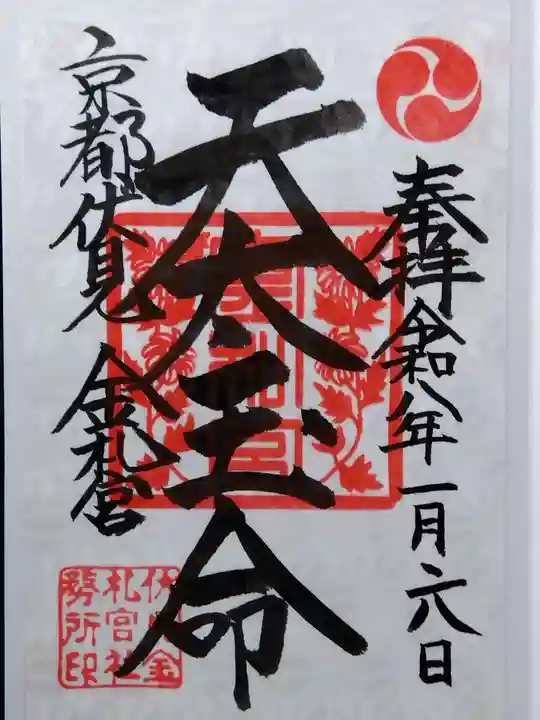 奉拝 令和八年一月六日
天太玉命
京都伏見 金札宮
伏見金札宮社務所印